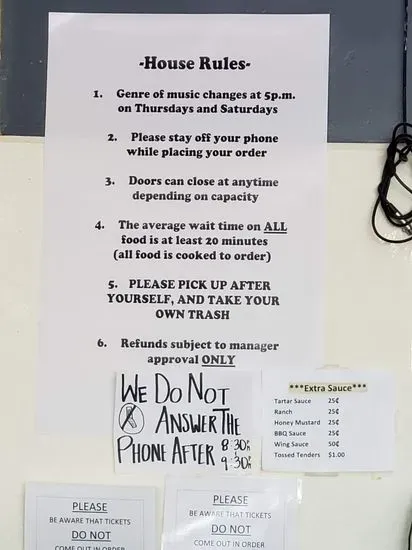 -House Rules-
1. Genre of music changes at 5p.m.
on Thursdays and Saturdays
2. Please stay off your phone
while placing your order
3. Doors can close at anytime
depending on capacity
4. The average wait time on ALL
food is at least 20 minutes
(all food is cooked to order)
5. PLEASE PICK UP AFTER
YOURSELF, AND TAKE YOUR
OWN TRASH
6. Refunds subject to manager
approval ONLY
WE DO NOT
ANSWER THE
PHONE AFTER 8:30
9:30
***Extra Sauce***
Tartar Sauce 25¢
Ranch 25¢
Honey Mustard 25¢
BBQ Sauce 25¢
Wing Sauce 50¢
Tossed Tenders $1.00
PLEASE
BE AWARE THAT TICKETS
DO NOT
COME OUT IN ORDER
PLEASE
BE AWARE THAT TICKETS
DO NOT
COME OUT IN ORDER